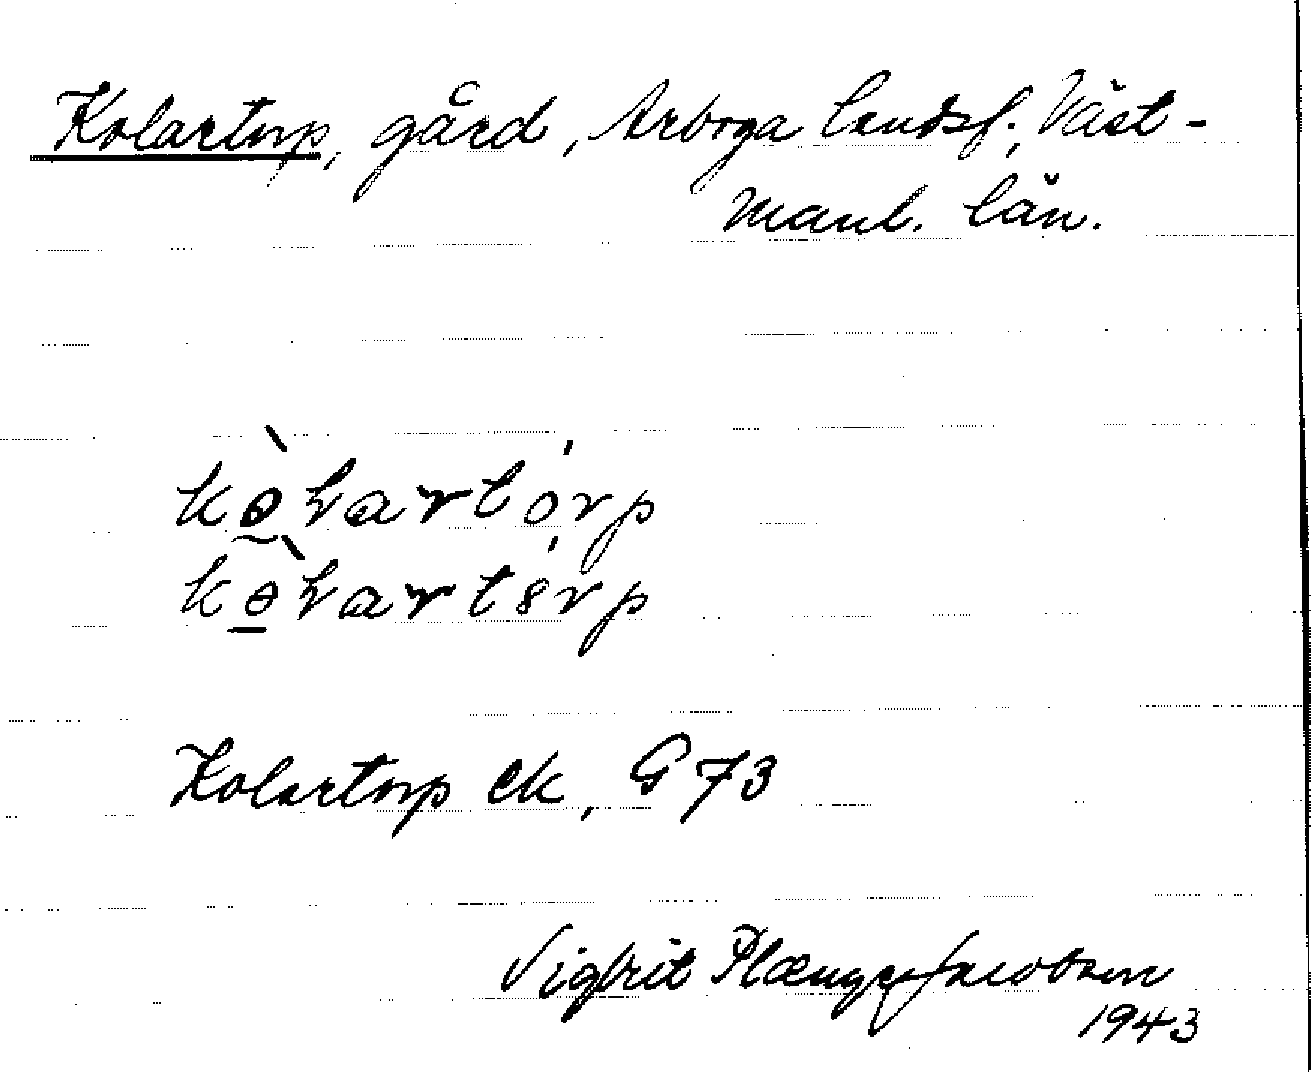 Kolartorp, gård, Arboga landsf., Väst-
manl. län.
kɵ̀ɫartórp
kɵ̀ɫartórp
Kolartorp ek, G 73
Sigfrit Plænge Jacobson
1943